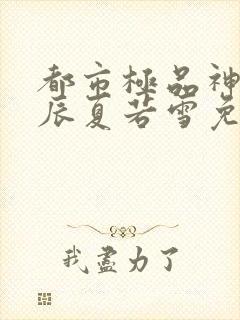 都市極品神
辰夏若雪免
我盡力了